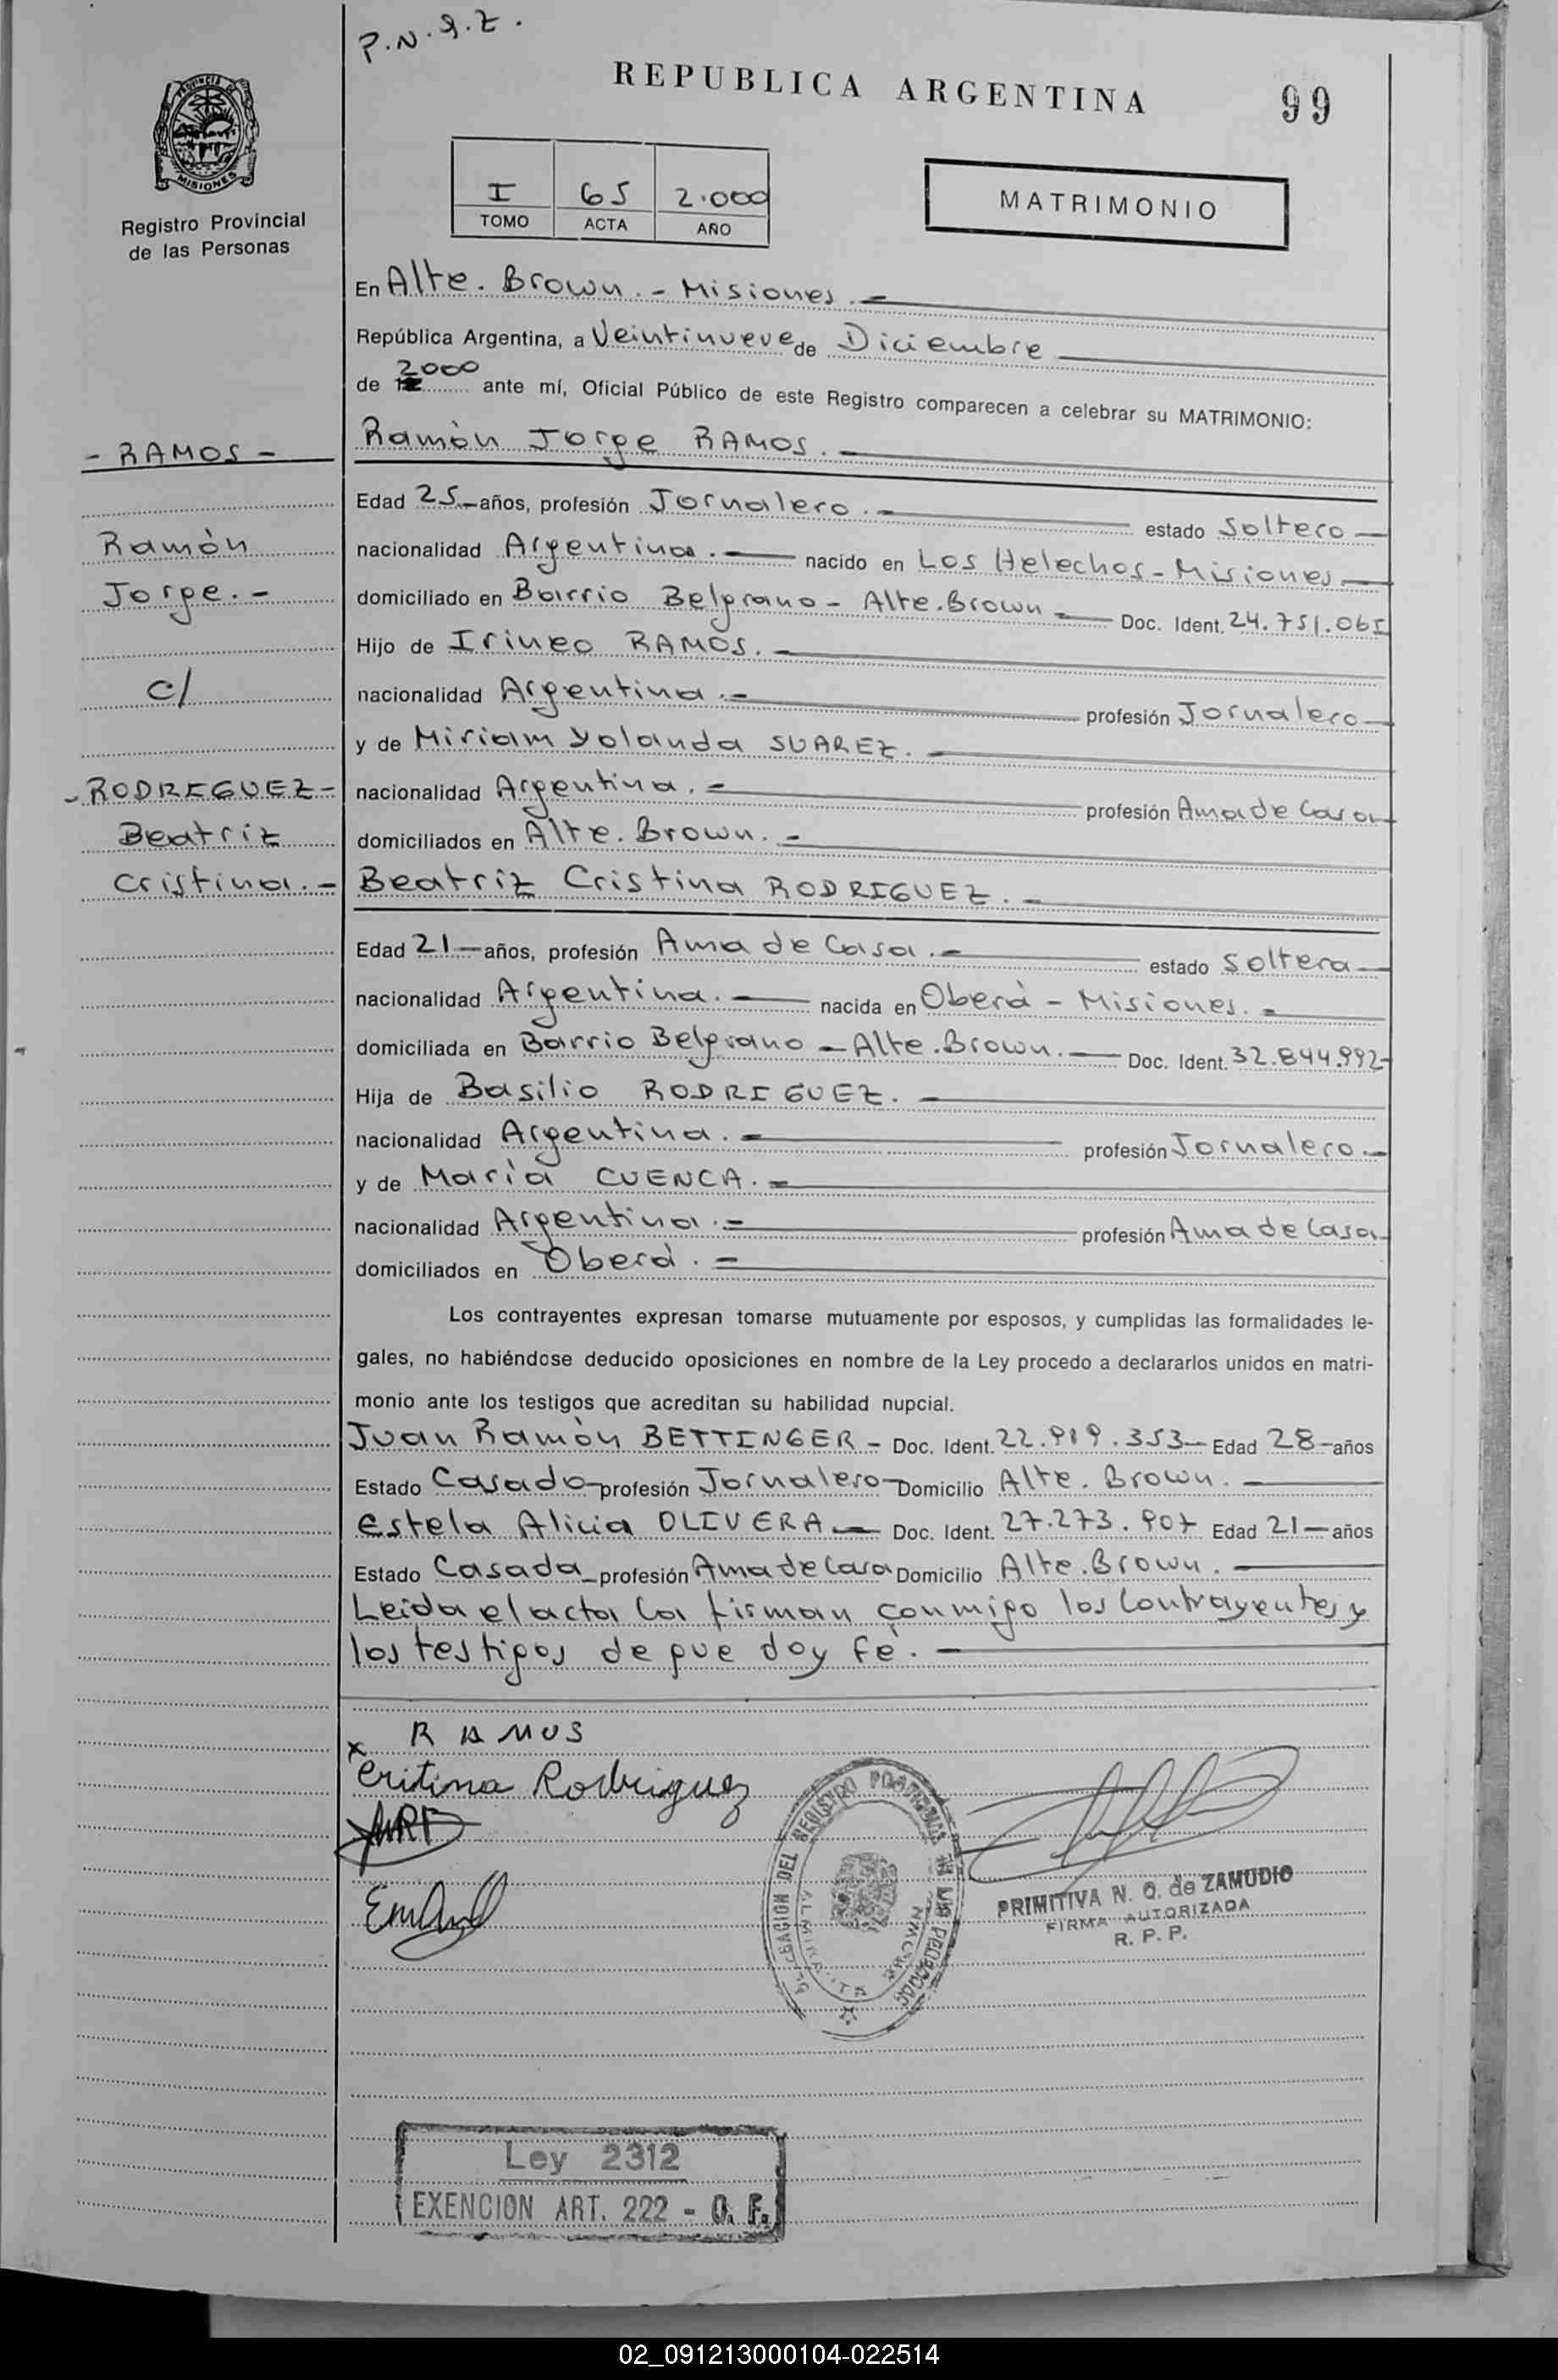 P.N.Q.Z.
REPUBLICA ARGENTINA
99
MISIONES
Registro Provincial
de las Personas
I 65 2.000
TOMO ACTA AÑO
MATRIMONIO
En Alte. Brown. - Misiones. -
República Argentina, a Veintinueve de Diciembre
de 2000 ante mí, Oficial Público de este Registro comparecen a celebrar su MATRIMONIO:
- RAMOS -
Ramòn Jorge RAMOS. -
Edad 25 - años, profesión Jornalero. - estado Soltero -
Ramòn
nacionalidad Argentina. - nacido en Los Helechos - Misiones -
Jorge. -
domiciliado en Barrio Belgrano - Alte. Brown - Doc. Ident. 24.751.061
Hijo de Irineo RAMOS. -
c/
nacionalidad Argentina. - profesión Jornalero -
y de Miriam Yolanda SUAREZ. -
- RODREGUEZ -
nacionalidad Argentina. - profesión Ama de Casa -
Beatriz
domiciliados en Alte. Brown. -
Cristina. -
Beatriz Cristina RODRIGUEZ. -
Edad 21 - años, profesión Ama de Casa. - estado Soltera -
nacionalidad Argentina. - nacida en Oberà - Misiones. -
domiciliada en Barrio Belgrano - Alte. Brown. - Doc. Ident. 32.844.992 -
Hija de Basilio RODRIGUEZ. -
nacionalidad Argentina. - profesión Jornalero. -
y de Marìa CUENCA. -
nacionalidad Argentina. - profesión Ama de Casa -
domiciliados en Oberà. -
Los contrayentes expresan tomarse mutuamente por esposos, y cumplidas las formalidades le-
gales, no habiéndose deducido oposiciones en nombre de la Ley procedo a declararlos unidos en matri-
monio ante los testigos que acreditan su habilidad nupcial.
Juan Ramòn BETTINGER - Doc. Ident. 22.919.353 - Edad 28 - años
Estado Casado - profesión Jornalero - Domicilio Alte. Brown. -
Estela Alicia OLIVERA - Doc. Ident. 27.273.907 Edad 21 - años
Estado Casada - profesión Ama de Casa Domicilio Alte. Brown. -
Leida el acta la firman conmigo los Contrayentes y
los testigos de que doy fè. -
RAMOS
x Critina Rodriguez
DEL REGISTRO
PRIMITIVA N. O. de ZAMUDIO
FIRMA AUTORIZADA
R. P. P.
Ley 2312
EXENCION ART. 222 - O. F.
02_091213000104-022514